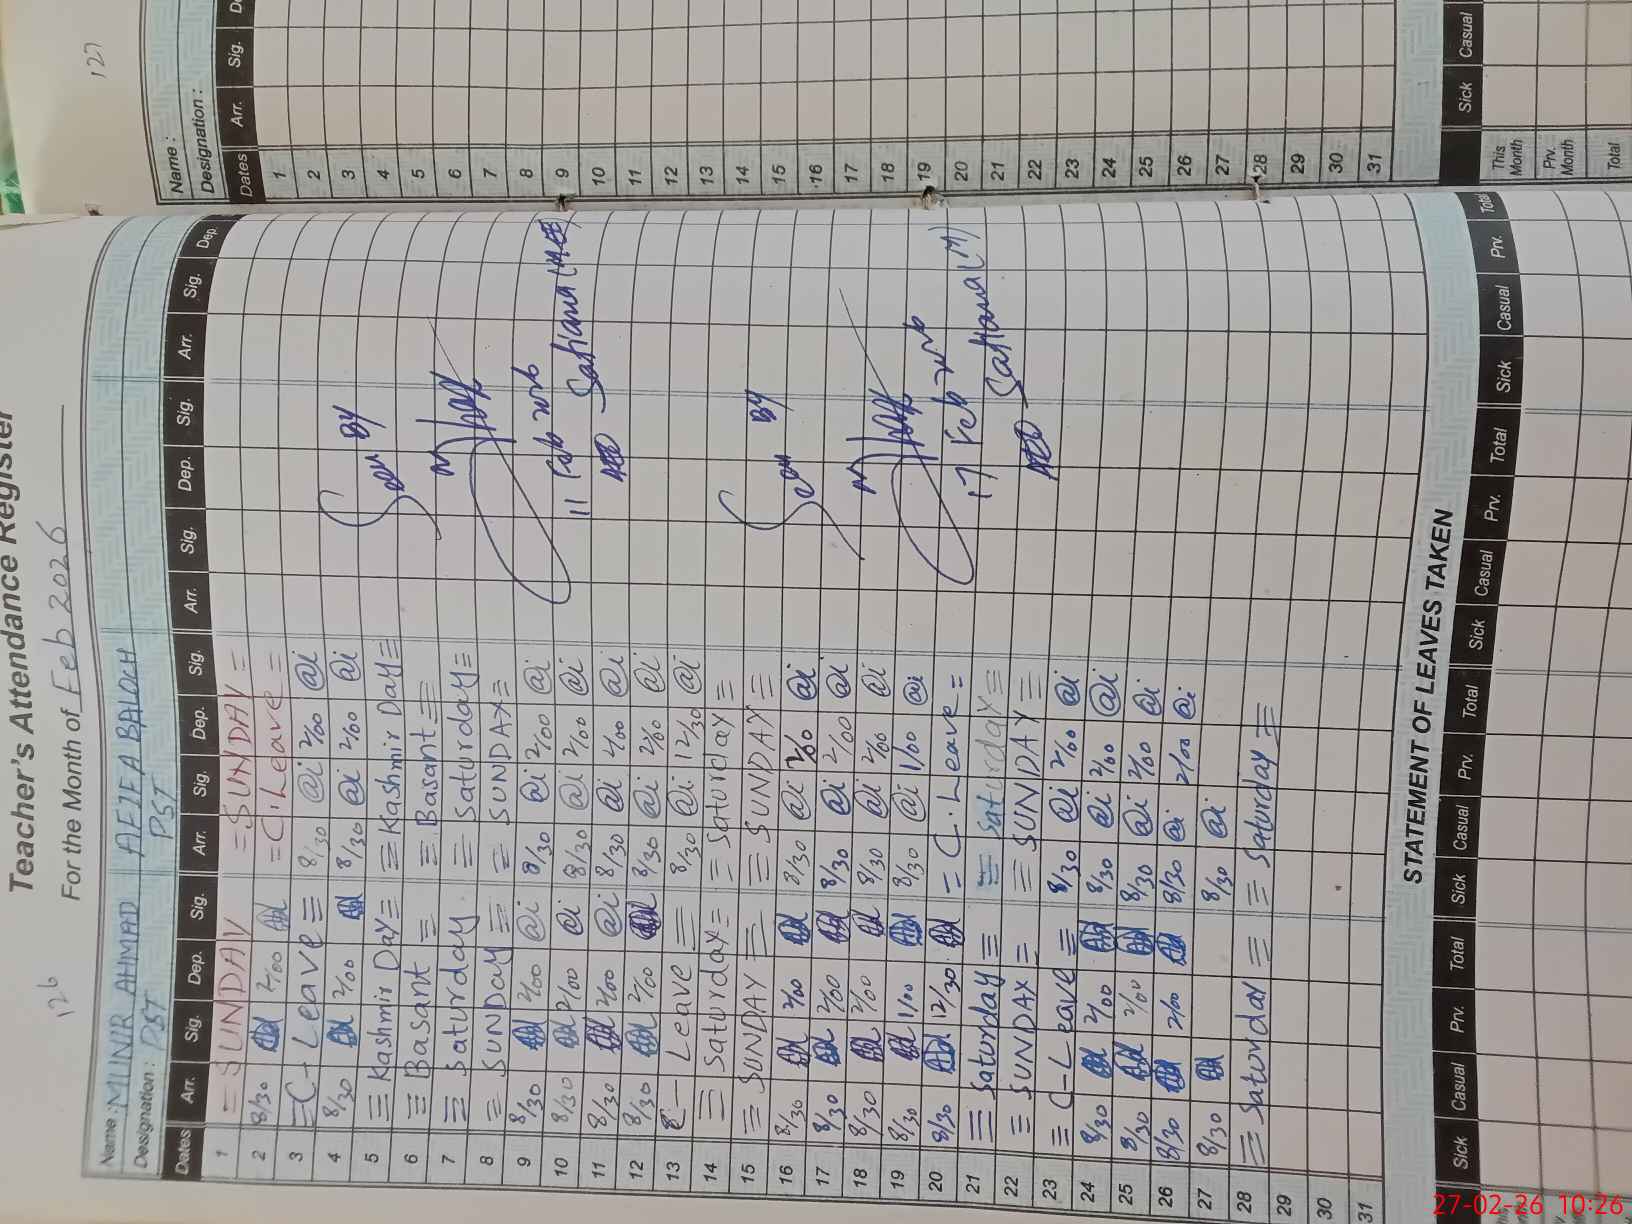 126
Teacher's Attendance Register
For the Month of Feb 2026
Name: MUNIR AHMAD AFIFA BALOCH
Designation: PST PST
Dates Arr. Sig. Dep. Sig. Arr. Sig. Dep. Sig. Arr. Sig. Dep. Sig. Arr. Sig. Dep.
1 = SUNDAY = SUNDAY =
2 8/30 2/00 = C.Leave =
3 = C-Leave = 8/30 @i 2/00 @i
4 8/30 2/00 8/30 @i 2/00 @i
5 = Kashmir Day = = Kashmir Day =
6 = Basant = = Basant =
7 = Saturday = Saturday =
8 = SUNDAY = = SUNDAY =
9 8/30 2/00 @i 8/30 @i 2/00 @i
10 8/30 2/00 @i 8/30 @i 2/00 @i
11 8/30 2/00 @i 8/30 @i 2/00 @i
12 8/30 2/00 8/30 @i 2/00 @i
13 C-Leave = 8/30 @i 12/30 @i
14 = Saturday = = Saturday =
15 = SUNDAY = = SUNDAY =
16 8/30 2/00 8/30 @i 2/00 @i
17 8/30 2/00 8/30 @i 2/00 @i
18 8/30 2/00 8/30 @i 2/00 @i
19 8/30 1/00 8/30 @i 1/00 @i
20 8/30 12/30 = C.Leave =
21 = Saturday = = Saturday =
22 = SUNDAY = = SUNDAY =
23 = C-Leave = 8/30 @i 2/00 @i
24 8/30 2/00 8/30 @i 2/00 @i
25 8/30 2/00 8/30 @i 2/00 @i
26 8/30 2/00 8/30 @i 2/00 @i
27 8/30 8/30 @i
28 = Saturday = = Saturday =
29
30
31
Seen By
11 Feb 2026
AEO Satiana (M)
Seen By
17 Feb 2026
AEO Satiana (M)
STATEMENT OF LEAVES TAKEN
Sick Casual Prv. Total Sick Casual Prv. Total Sick Casual Prv. Total Sick Casual Prv. Total
127
Name :
Designation :
Dates Arr. Sig.
1
2
3
4
5
6
7
8
9
10
11
12
13
14
15
16
17
18
19
20
21
22
23
24
25
26
27
28
29
30
31
Sick Casual
This Month
Prv. Month
Total
27-02-26 10:26